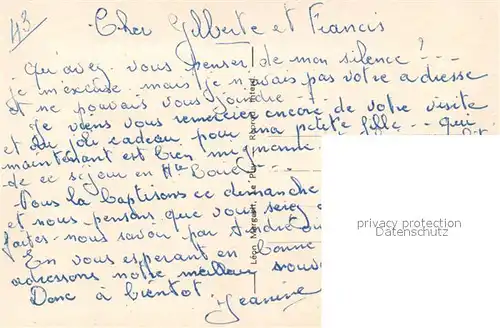 43
Cher Gilberte et Francis
Qu'avez vous penser de mon silence ? ---
je m'excuse mais je n'avais pas votre adresse
et ne pouvais vous joindre ---
Je viens vous remercier encore de votre visite
et du joli cadeau pour ma petite fille -- qui
maintenant est bien mignonne
de ce séjour en Hte Loire
Nous la baptisons ce dimanche
et nous pensons que vous serez
faites-nous savoir par
En vous esperant en bonne
adressons notre meilleur souv
Donc à bientot. Jeanine
Léon Margerit, Le Puy
privacy protection
Datenschutz